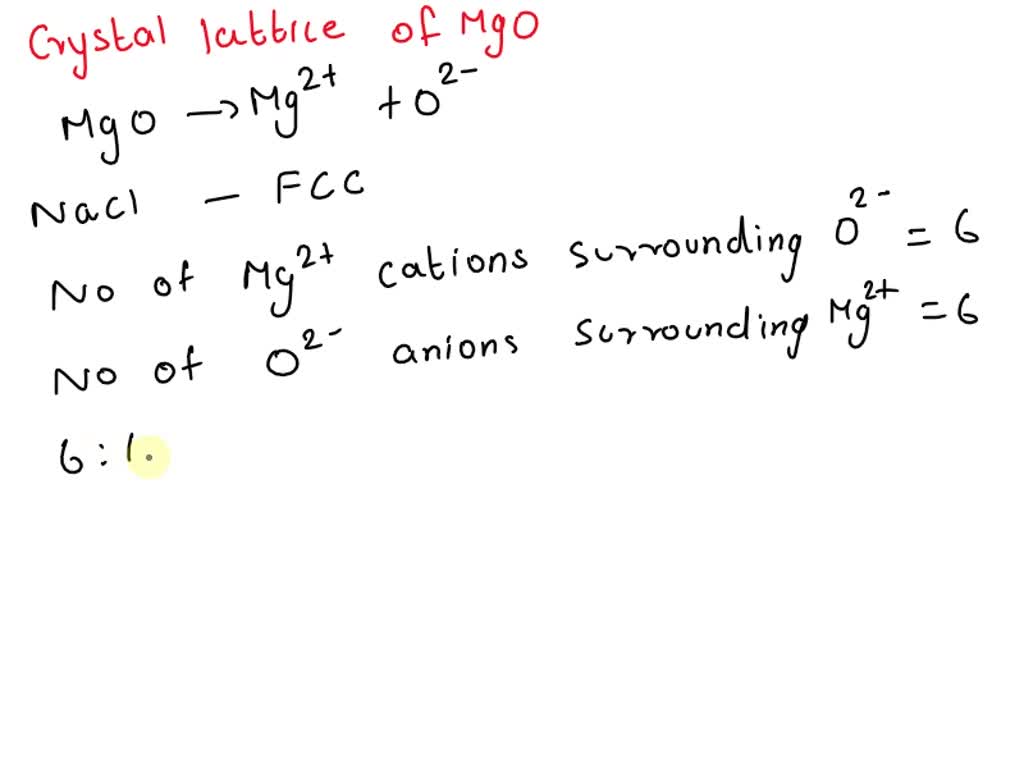 Crystal lattice of MgO
MgO → Mg²⁺ + O²⁻
NaCl – FCC
No of Mg²⁺ cations surrounding O²⁻ = 6
No of O²⁻ anions surrounding Mg²⁺ = 6
6 :